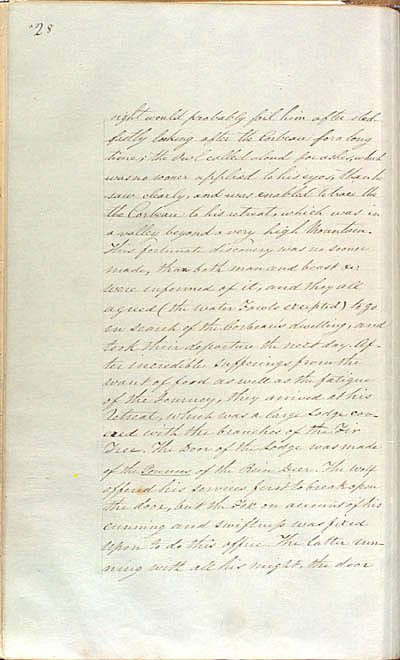 28
sight would probably foil him after sted
fastly looking after the Corbeau for a long
time; the Owl called aloud for ashes, which
was no sooner applied to his eyes, than he
saw clearly, and was enabled to trace the
the Corbeau to his retreat, which was in
a valley beyond a very high Mountain.
This fortunate discovery was no sooner
made, than both man and beast
were informed of it, and they all
agreed (the Water Fowls excepted) to go
in search of the Corbeaus dwelling, and
took their departure the next day. Af-
ter incredible sufferings from the
want of food as well as the fatigue
of the Journey, they arrived at his
Retreat, which was a large Lodge cov-
ered with the branches of the Fir
Tree. The Door of the Lodge was made
of the of the Rein Deer. The Wolf
offered his services first to break open
the door, but the Fox on account of his
cunning and swiftness was fixed
upon to do this office. The latter run-
ning with all his might, the door